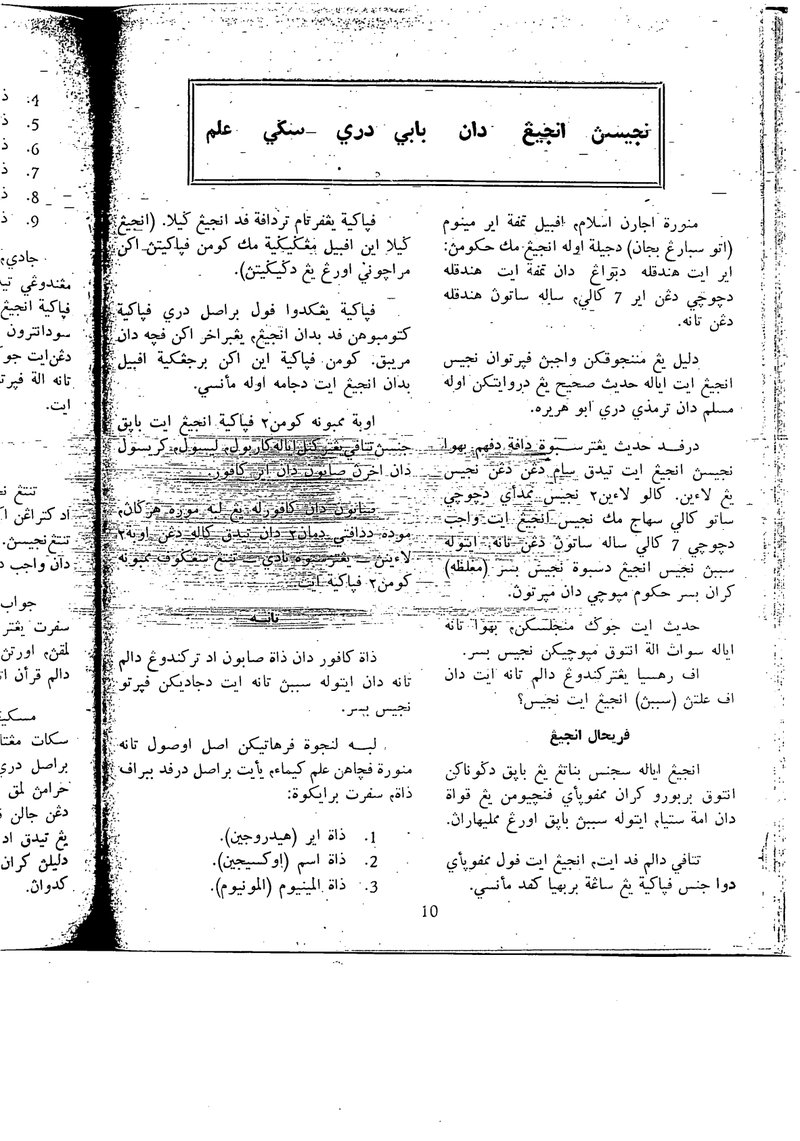 نجيسڽ انجيڠ دان بابي دري سݢي علم
منورة اجارن اسلام، اڤبيل تمڤة اير مينوم
(اتو سبارڠ بجان) دجيلة اوله انجيڠ مك حكومڽ:
اير ايت هندقله دبواڠ دان تمڤة ايت هندقله
دچوچي دڠن اير 7 كالي، ساله ساتوڽ هندقله
دڠن تانه.
دليل يڠ منونجوقكن واجبڽ ڤرتوان نجيس
انجيڠ ايت اياله حديث صحيح يڠ دروايتكن اوله
مسلم دان ترمذي دري ابو هريره.
درڤد حديث يڠترسبوة داڤة دفهم بهوا
نجيسڽ انجيڠ ايت تيدق سام دڠن دڠن نجيس
يڠ لاءين. كالو لاءين٢ نجيس ممداٴي دچوچي
ساتو كالي سهاج مك نجيس انجيڠ ايت واجب
دچوچي 7 كالي ساله ساتوڽ دڠن تانه. ايتوله
سببڽ نجيس انجيڠ دسبوة نجيس بسر (مغلظه)
كران بسر حكوم مڽوچي دان مڽرتوڽ.
حديث ايت جوݢ منجلسكن، بهوا تانه
اياله سوات الة انتوق مڽوچيكن نجيس بسر.
اڤ رهسيا يڠتركندوڠ دالم تانه ايت دان
اڤ علتڽ (سببڽ) انجيڠ ايت نجيس؟
ڤريحال انجيڠ
انجيڠ اياله سجنس بناتڠ يڠ باڽق دݢوناكن
انتوق بربورو كران ممڤوڽاٴي ڤنچيومن يڠ قواة
دان امة ستيا، ايتوله سببڽ باڽق اورڠ ممليهاراڽ.
تتاڤي دالم ڤد ايت، انجيڠ ايت ڤول ممڤوڽاٴي
دوا جنس ڤڽاكية يڠ ساڠة بربهيا كڤد مأنسي.
ڤڽاكية يڠڤرتام تردافة ڤد انجيڠ ݢيلا. (انجيڠ
ݢيلا اين اڤبيل مڠݢيݢية مك كومن ڤڽاكيتڽ اكن
مراچوني اورڠ يڠ دݢيݢيتڽ).
ڤڽاكية يڠكدوا ڤول براصل دري ڤڽاكية
كتومبوهن ڤد بدان انجيڠ، يڠبراخر اكن ڤچه دان
مريبق. كومن ڤڽاكية اين اكن برجڠكية اڤبيل
بدان انجيڠ ايت دجامه اوله مأنسي.
اوبة ممبونه كومن٢ ڤڽاكية انجيڠ ايت باڽق
جنسڽ تتاڤي يڠتركنل اياله كاربول، ليسول، كريسول
دان اخرڽ صابون دان اير كاڤور.
صابون دان كاڤورله يڠ لبه موره هرݢاڽ،
موده دداڤتي دمان٢ دان تيدق كاله دڠن اوبة٢
لاءينڽ يڠترسبوة تادي تنتڠ سڠݢوڤ ممبونه
كومن٢ ڤڽاكية ايت.
تانه
ذاة كاڤور دان ذاة صابون اد تركندوڠ دالم
تانه دان ايتوله سببڽ تانه ايت دجاديكن ڤڽرتو
نجيس بسر.
لبه لنجوة ڤرهاتيكن اصل اوصول تانه
منورة ڤچاهن علم كيمياء، يأيت براصل درڤد ببراڤ
ذاة، سڤرت برايكوة:
1. ذاة اير (هيدروجين).
2. ذاة اسم (اوكسيجين).
3. ذاة المينيوم (المونيوم).
10
4. ذ
5. ذ
6. ذ
7. ذ
8. ذ
9. ذ
جادي،
مڠندوڠي تيد
ڤڽاكية انجيڠ
دڠن ايت جوݢ
ايت.
دان واجب د
جواب
سڤرت يڠتر
دالم قرآن ا
براصل دري
دڠن جالن
يڠ تيدق اد
دليلڽ كران
كدواڽ.